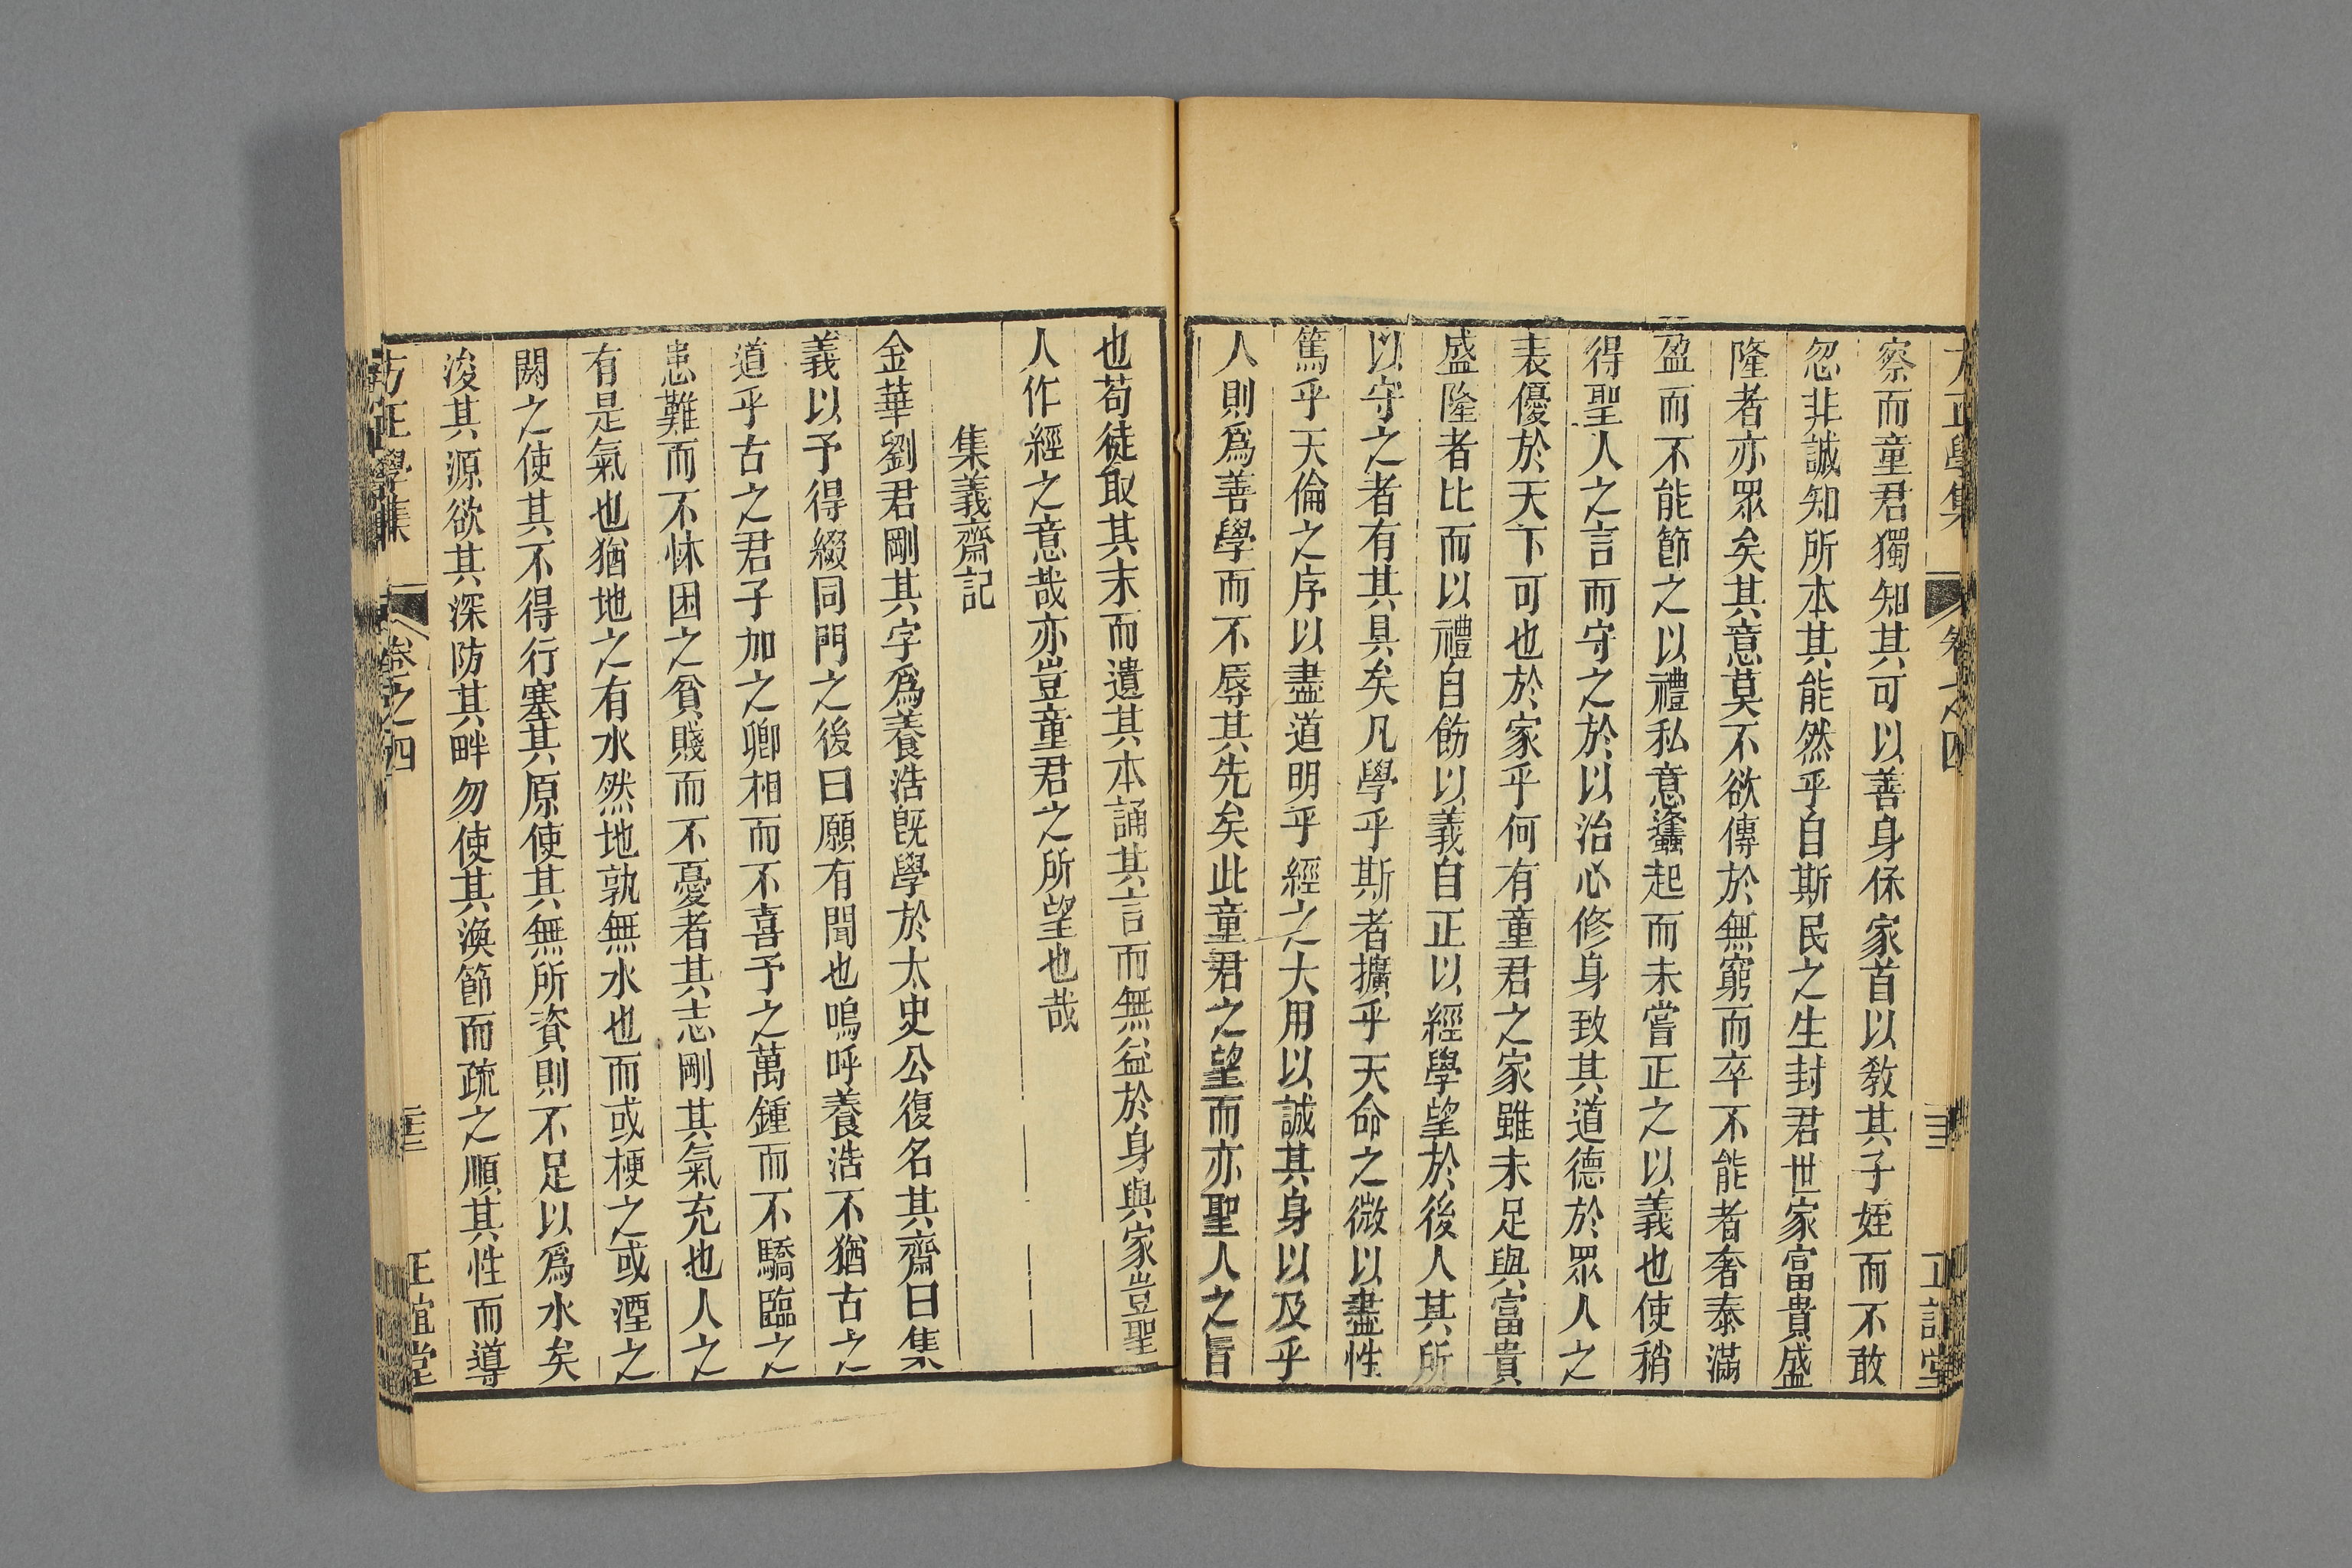 察而童君獨知其可以善身保家首以教其子姪而不敢
忽非誠知所本其能然乎自斯民之生封君世家富貴盛
隆者亦眾矣其意莫不欲傳於無窮而卒不能者奢泰滿
盈而不能節之以禮私意蠭起而未嘗正之以義也使稍
得聖人之言而守之於以治心修身致其道德於眾人之
表優於天下可也於家乎何有童君之家雖未足與富貴
盛隆者比而以禮自飭以義自正以經學望於後人其所
以守之者有其具矣凡學乎斯者擴乎天命之微以盡性
篤乎天倫之序以盡道明乎經之大用以誠其身以及乎
人則爲善學而不辱其先矣此童君之望而亦聖人之旨
也苟徒取其末而遺其本誦其言而無益於身與家豈聖
人作經之意哉亦豈童君之所望也哉
集義齋記
金華劉君剛其字爲養浩既學於太史公復名其齋曰集
義以予得綴同門之後曰願有聞也嗚呼養浩不猶古之
道乎古之君子加之卿相而不喜予之萬鍾而不驕臨之
患難而不怵困之貧賤而不憂者其志剛其氣充也人之
有是氣也猶地之有水然地孰無水也而或梗之或湮之
閼之使其不得行塞其原使其無所資則不足以爲水矣
浚其源欲其深防其畔勿使其渙節而疏之順其性而導
方正學集 卷之四 正誼堂